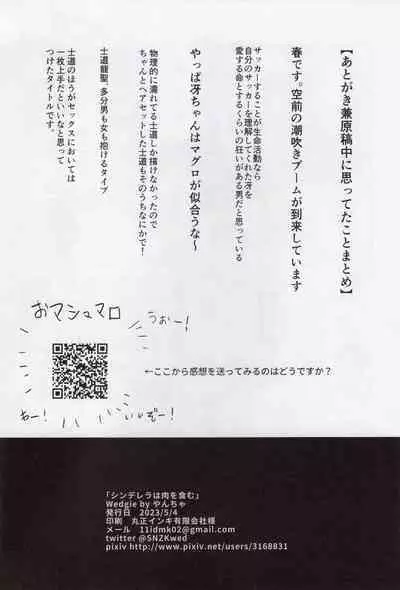 【あとがき兼原稿中に思ってたことまとめ】
春です。空前の潮吹きブームが到来しています
サッカーすることが生命活動なら
自分のサッカーを理解してくれた冴を
愛する命とするくらいの狂いがある男だと思っている
やっぱ冴ちゃんはマグロが似合うな～
物理的に濡れてる士道しか描けなかったので
ちゃんとヘアセットした士道もそのうちなにかで！
士道龍聖 多分男も女も抱けるタイプ
士道のほうがセックスにおいては
一枚上手だといいなと思って
つけたタイトルです。
おマシュマロ
うおー！
わー！
いいぞー！
←ここから感想を送ってみるのはどうですか？
「シンデレラは肉を食む」
Wedgie by やんちゃ
発行日　2023/5/4
印刷　丸正インキ有限会社様
メール　11idmk02@gmail.com
twitter @SNZKwed
pixiv http://www.pixiv.net/users/3168831